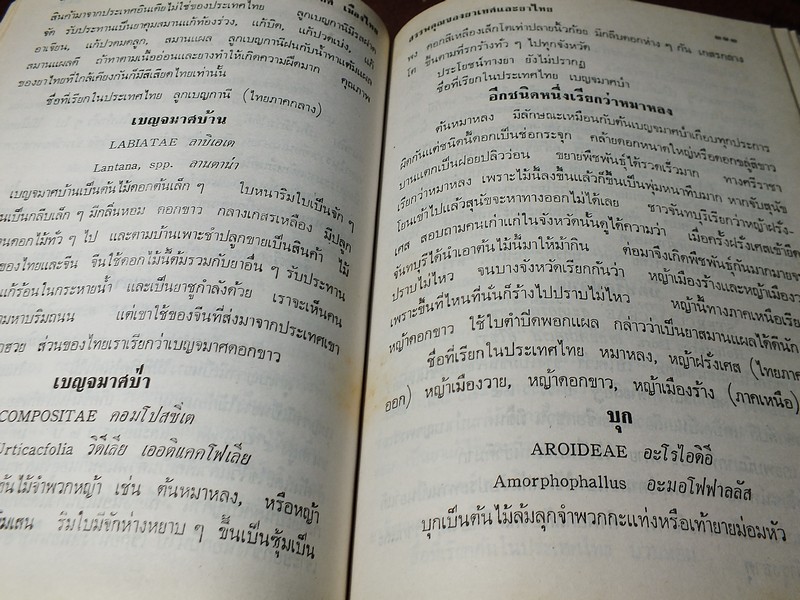 สินค้ามาจากประเทศอินเดียไม่ใช่ของไทย ลูกเบญกานีมีรสฝาด
จัด รับประทานเป็นยาคุมสมานแก้ท้องร่วง, แก้บิด, แก้ปวดเบ่ง, แก้
อาเจียน, แก้ปวดมดลูก, สมานแผล ลูกเบญกานีฝนกับน้ำทาแต้มแผล
สมานแผลดี ถ้าทาตามเนื้ออ่อนและยางทำให้เกิดความฝืดมาก คุณภาพ
ของยาไทยที่ใกล้เคียงกันก็มีสีเสียดไทยเท่านั้น
ชื่อที่เรียกในประเทศไทย ลูกเบญกานี (ไทยภาคกลาง)
เบญจมาศบ้าน
LABIATAE ลาบิเอเต
Lantana, spp. ลานตาน่า
เบญจมาศบ้านเป็นต้นไม้ดอกต้นเล็ก ๆ ใบหนาริมใบเป็นจัก ๆ
เป็นกลีบเล็ก ๆ มีกลิ่นหอม ดอกขาว กลางเกสรเหลือง มีปลูก
ดอกไม้ทั่ว ๆ ไป และตามบ้านเพาะชำปลูกขายเป็นสินค้า ไม้
ของไทยและจีน จีนใช้ดอกไม้นี้ต้มรวมกับยาอื่น ๆ รับประทาน
แก้ร้อนในกระหายน้ำ และเป็นยาชูกำลังด้วย เราจะเห็นคน
ตามหาบริมถนน แต่เขาใช้ของจีนที่ส่งมาจากประเทศเขา
ส่วนของไทยเราเรียกว่าเบญจมาศดอกขาว
เบญจมาศป่า
COMPOSITAE คอมโปสซิเต
Urticacfolia วิดีเลีย เออติแคคโฟเลีย
ต้นไม้จำพวกหญ้า เช่น ต้นหมาหลง, หรือหญ้า
ริมใบมีจักห่างหยาบ ๆ ขึ้นเป็นซุ้มเป็น
สรรพคุณของยาเทศและยาไทย
ดอกสีเหลืองเล็กโตเท่าปลายนิ้วก้อย มีกลีบดอกห่าง ๆ กัน เกสรกลาง
โต ขึ้นตามที่รกร้างทั่ว ๆ ไปทุกจังหวัด
ประโยชน์ทางยา ยังไม่ปรากฏ
ชื่อที่เรียกในประเทศไทย เบญจมาศป่า
อีกชนิดหนึ่งเรียกว่าหมาหลง
ต้นหมาหลง มีลักษณะเหมือนกับต้นเบญจมาศป่าเกือบทุกประการ
ผิดกันแต่ชนิดนี้ดอกเป็นช่อกระจุก คล้ายดอกหนาดใหญ่หรือดอกขลุ่สีขาว
บานแตกเป็นฝอยปลิวว่อน ขยายพืชพันธุ์ได้รวดเร็วมาก ทางศรีราชา
เรียกว่าหมาหลง เพราะไม้นี้ลงขึ้นแล้วก็ขึ้นเป็นพุ่มหนาทึบมาก หากจับสุนัข
โยนเข้าไปแล้วสุนัขจะหาทางออกไม่ได้เลย ชาวจันทบุรีเรียกว่าหญ้าฝรั่ง-
เศส สอบถามคนเก่าแก่ในจังหวัดนั้นดูได้ความว่า เมื่อครั้งฝรั่งเศสเข้ายึด
จันทบุรีได้นำเอาต้นไม้นี้มาให้ม้ากิน ต่อมาจึงเกิดพืชพันธุ์กันมากมายจน
ปราบไม่ไหว จนบางจังหวัดเรียกกันว่า หญ้าเมืองร้างและหญ้าเมืองวาย
เพราะขึ้นที่ไหนที่นั่นก็ร้างไปปราบไม่ไหว หญ้านี้ทางภาคเหนือเรียก
หญ้าดอกขาว ใช้ใบตำปิดพอกแผล กล่าวว่าเป็นยาสมานแผลได้ดีนัก
ชื่อที่เรียกในประเทศไทย หมาหลง, หญ้าฝรั่งเศส (ไทยภาค
ออก) หญ้าเมืองวาย, หญ้าดอกขาว, หญ้าเมืองร้าง (ภาคเหนือ)
บุก
AROIDEAE อะโรไอดิอี
Amorphophallus อะมอโฟฟาลลัส
บุกเป็นต้นไม้ล้มลุกจำพวกกะแท่งหรือเท้ายายม่อมหัว